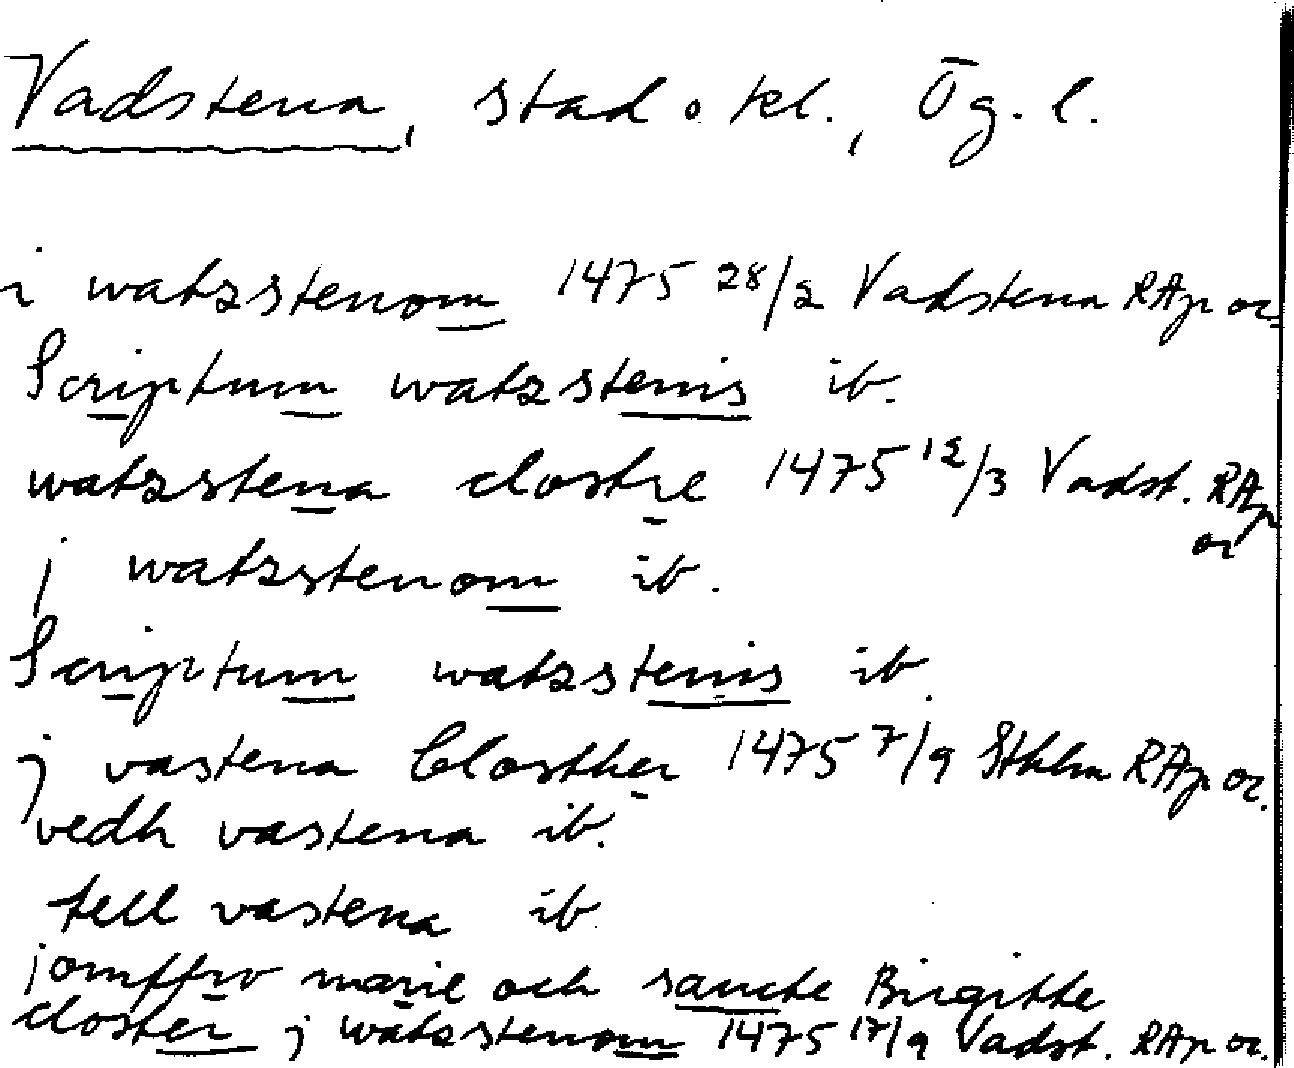 Vadstena, stad o kl., Ög. l.
i watzstenom 1475 28/2 Vadstena RAp or.
Scriptum watzstenis ib.
watzstena clostre 1475 12/3 Vadst. RAp
or
j watzstenom ib.
Scriptum watzstenis ib.
j vastena Closther 1475 7/9 Sthlm RAp or.
vedh vastena ib.
tell vastena ib
jomffrv marie och sancte Birgitte
closter j watzstenom 1475 17/9 Vadst. RAp or.